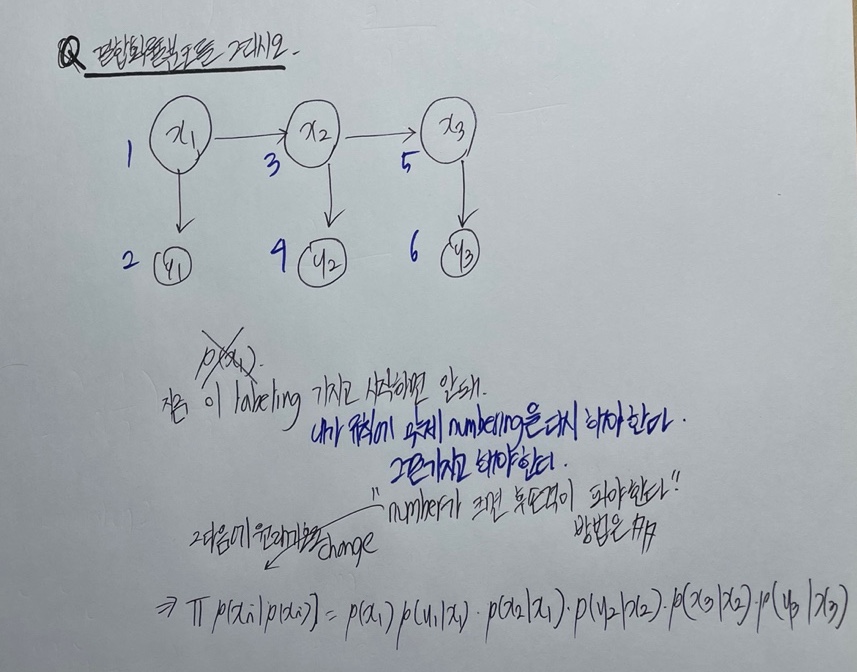 Q 결합확률분포를 그리시오.
x1 x2 x3
1 3 5
2 y1 4 y2 6 y3
p(x1).
지금 이 labeling 가지고 시작하면 안돼.
내가 규칙에 맞게 numbering을 다시 해야 한다.
그걸가지고 해야한다.
"number가 크면 후손격이 돼야한다."
방법은 多多
그다음에 원래대로 change
⇒ Π p(xi|p(xi)] = p(x1) p(y1|x1) · p(x2|x1) · p(y2|x2) · p(x3|x2) · p(y3|x3)